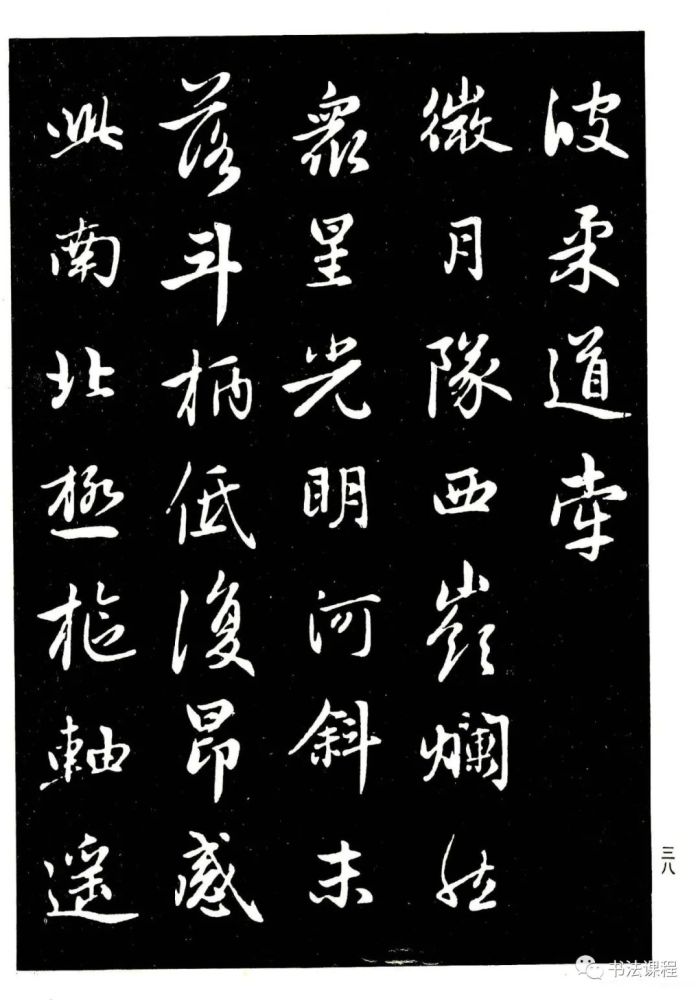 彼柔道牽
微月隊西嶺爛然
衆星光明河斜未
落斗柄低復昂感
此南北極樞軸遥
三八
书法课程